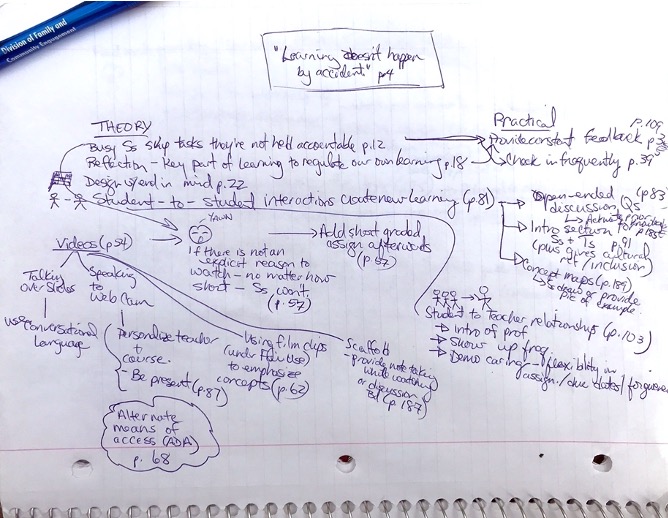 Division of Family and
Community Engagement
"Learning doesn't happen
by accident" p4
THEORY
Busy Ss skip tasks they're not held accountable p.12
Reflection - Key part of Learning to regulate our own learning p.18
Design w/end in mind p.22
Student - to - Student interactions create new learning (p.81)
Practical
p.109
Provide constant feedback
Check in frequently p.39
Open-ended (p.83)
discussion Qs
Intro section to
Ss + Ts p.91
(plus gives cultural
ref / inclusion)
Concept maps (p.189)
Ss draw or provide
pic of example
YAWN
If there is not an
explicit reason to
watch - no matter how
short - Ss won't.
(p.57)
Add short graded
assign afterwards
(p.57)
Videos (p.54)
Talking
over Slides
use conversational
Language
Speaking
to
web cam
Personalize teacher
+
course.
- Be present (p.87)
Using film clips
(under Fair Use)
to emphasize
concepts (p.62)
Scaffold
- provide note taking
while watching
or discussion
(p.187)
Student to Teacher relationships (p.103)
Intro of prof
Show up freq
Demo caring - flexibility in
assign./due dates/forgiveness
Alternate
means of
access (ADA)
p. 68